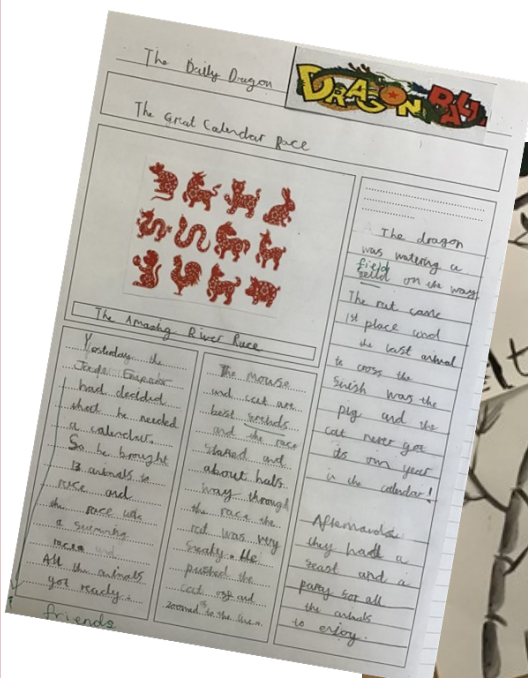 The Daily Dragon
DRAGON BALL
The Great Calendar Race
The Amazing River Race
Yesterday the
Jade Emperor
had decided
that he needed
a calendar.
So he brought
13 animals to
race and
the race was
a swimming
race
All the animals
got ready.
friends
The mouse
and cat are
best
and the race
started and
about half
way through
the race the
rat was very
sneaky. He
pushed the
cat off and
zoomed to the
The dragon
was watering a
field
on the way
The rat came
1st place and
the last animal
to cross the
finish was the
pig and the
cat never got
its own year
in the calendar!
Afterwards
they had a
feast and a
party for all
the animals
to enjoy.
elt